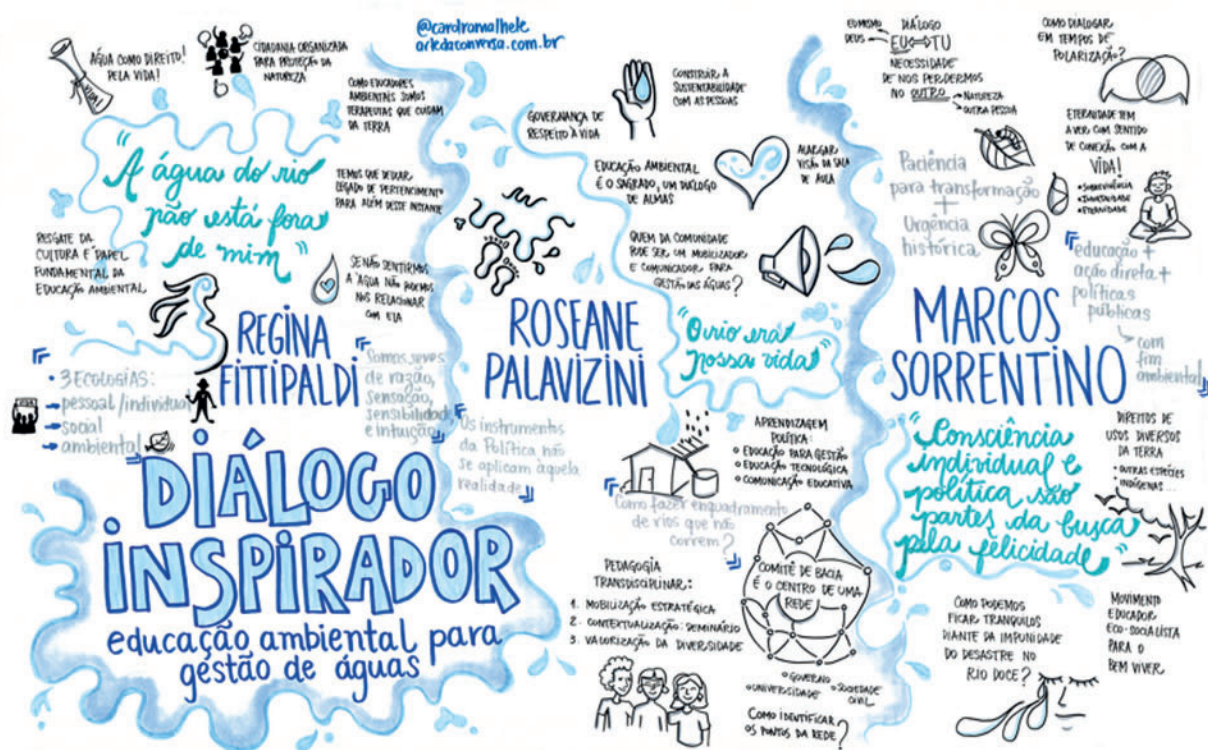 @carolramalhete
artedaconversa.com.br
ÁGUA COMO DIREITO!
PELA VIDA!
CIDADANIA ORGANIZADA
PARA PROTEÇÃO DA
NATUREZA
COMO EDUCADORES
AMBIENTAIS SOMOS
TERAPEUTAS QUE CUIDAM
DA TERRA
"A água do rio
não está fora
de mim"
TEMOS QUE DEIXAR
LEGADO DE PERTENCIMENTO
PARA ALÉM DESSE INSTANTE
RESGATE DA
CULTURA É PAPEL
FUNDAMENTAL DA
EDUCAÇÃO AMBIENTAL
SE NÃO SENTIRMOS
A ÁGUA NÃO PODEMOS
NOS RELACIONAR
COM ELA
REGINA
FITTIPALDI
• 3 ECOLOGIAS:
pessoal/individual
social
ambiental
Somos seres
de razão,
sensação,
sensibilidade
e intuição
DIÁLOGO
INSPIRADOR
educação ambiental para
gestão de águas
CONSTRUIR A
SUSTENTABILIDADE
COM AS PESSOAS
GOVERNANÇA DE
RESPEITO À VIDA
EDUCAÇÃO AMBIENTAL
É O SAGRADO, UM DIÁLOGO
DE ALMAS
ALARGAR
VISÃO DA SALA
DE AULA
QUEM DA COMUNIDADE
PODE SER UM MOBILIZADOR
E COMUNICADOR PARA
GESTÃO DAS ÁGUAS?
ROSEANE
PALAVIZINI
"O rio era
nossa vida"
Os instrumentos
da Política não
se aplicam àquela
realidade
APRENDIZAGEM
POLÍTICA:
EDUCAÇÃO PARA GESTÃO
EDUCAÇÃO TECNOLÓGICA
COMUNICAÇÃO EDUCATIVA
Como fazer enquadramento
de rios que não
correm?
PEDAGOGIA
TRANSDISCIPLINAR:
1. MOBILIZAÇÃO ESTRATÉGICA
2. CONTEXTUALIZAÇÃO: SEMINÁRIO
3. VALORIZAÇÃO DA DIVERSIDADE
COMITÊ DE BACIA
É O CENTRO DE UMA
REDE
GOVERNO
UNIVERSIDADE
SOCIEDADE
CIVIL
COMO IDENTIFICAR
OS PONTOS DA REDE?
EU MESMO
DEUS
DIÁLOGO
EU TU
NECESSIDADE
DE NOS PERDERMOS
NO OUTRO
NATUREZA
OUTRA PESSOA
COMO DIALOGAR
EM TEMPOS DE
POLARIZAÇÃO?
ETERNIDADE TEM
A VER COM SENTIDO
DE CONEXÃO COM A
VIDA!
• SOBREVIVÊNCIA
• IMORTALIDADE
• ETERNIDADE
Paciência
para transformação
+
Urgência
histórica
educação +
ação direta +
políticas
públicas
com
fim
ambiental
MARCOS
SORRENTINO
"Consciência
individual e
política são
partes da busca
pela felicidade"
DIREITOS DE
USOS DIVERSOS
DA TERRA
• OUTRAS ESPÉCIES
• INDÍGENAS...
COMO PODEMOS
FICAR TRANQUILOS
DIANTE DA IMPUNIDADE
DO DESASTRE NO
RIO DOCE?
MOVIMENTO
EDUCADOR
ECO-SOCIALISTA
PARA O
BEM VIVER